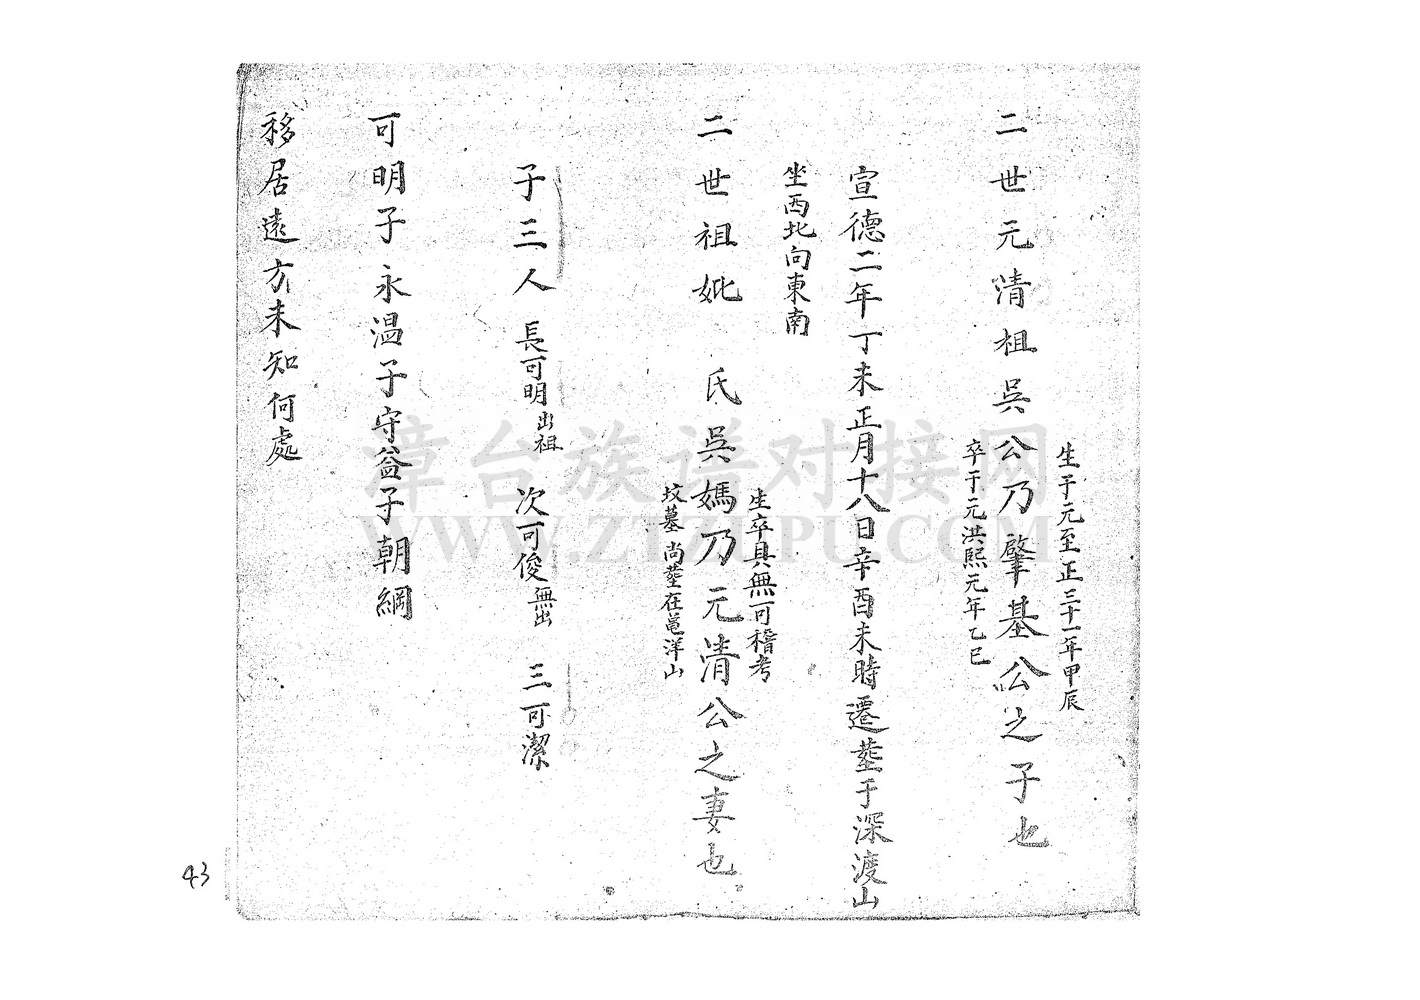 二世元清祖吳公乃肇基公之子也
生于元至正三十一年甲辰
卒于元洪熙元年乙巳
宣德二年丁未正月十八日辛酉未時遷塟于深渡山
坐西北向東南
二世祖妣 氏吳媽乃元清公之妻也
生卒具無可稽考
坟墓尚塟在黽洋山
子三人 長可明出祖 次可俊無出 三可潔
可明子永温子守益子朝綱
移居遠方未知何處
漳台族谱对接网
WWW.ZTZUPU.COM
43